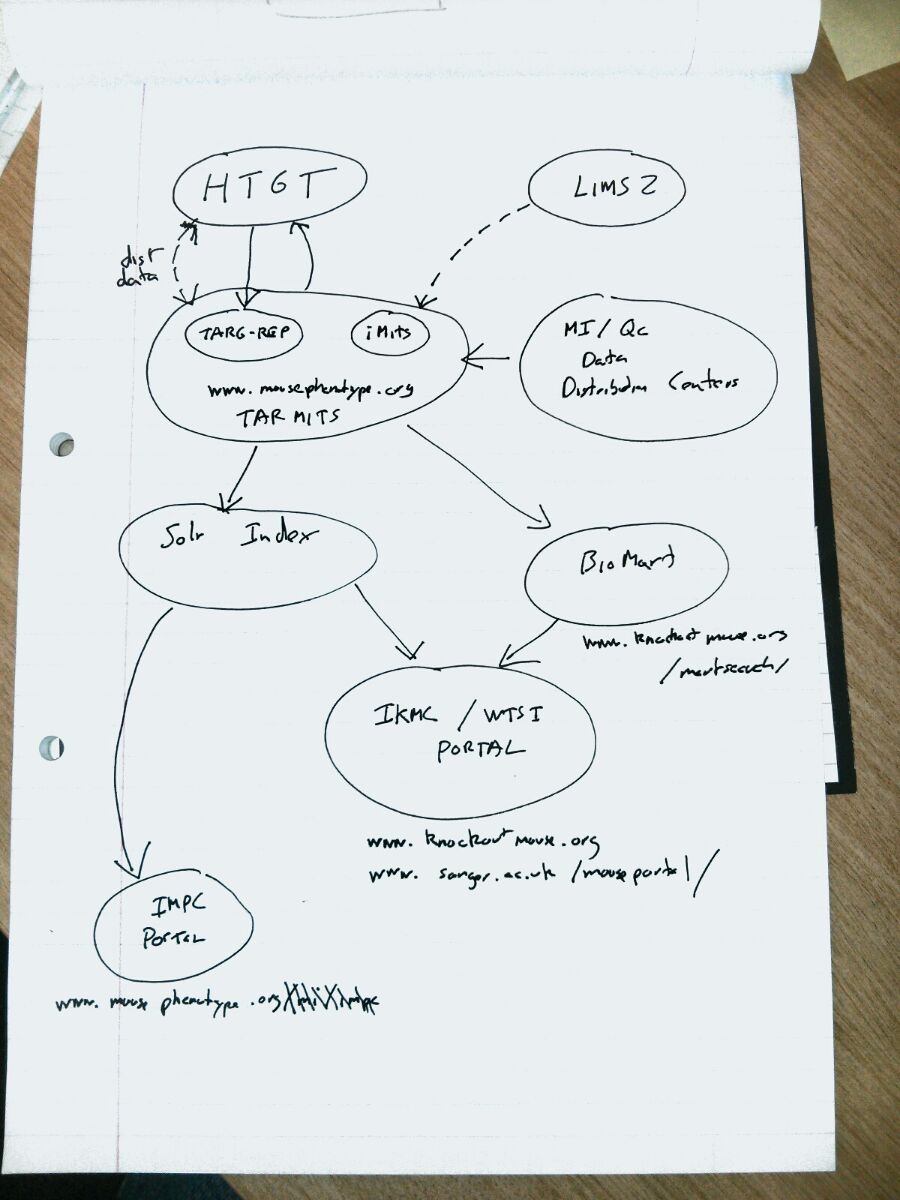 HTGT
LIMS2
dist
data
TARG-REP
iMits
www.mousephenotype.org
TARMITS
MI/QC
Data
Distribution Centers
Solr Index
BioMart
www.knockoutmouse.org
/martsearch/
IKMC / WTSI
PORTAL
www.knockoutmouse.org
www.sanger.ac.uk/mouseportal/
IMPC
PORTAL
www.mousephenotype.org